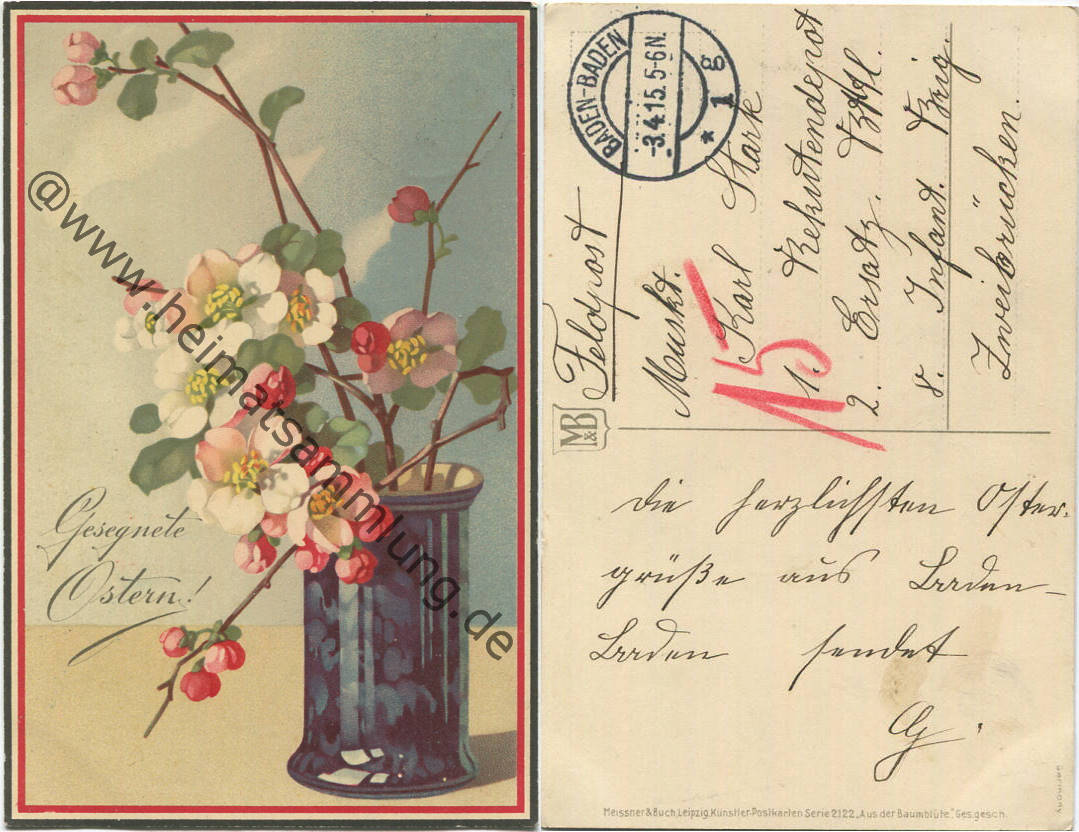 Gesegnete
Ostern!
@www.heimatsammlung.de
BADEN-BADEN
-3.4.15.5-6N.
* 1 g
Feldpost
Muskt.
Karl Stark
1. Rekrutendepot
2. Ersatz. Batl.
8. Infant. Brig.
Zweibrücken.
15
M&B
Die herzlichsten Oster-
grüße aus Baden-
Baden sendet
G.
Meissner & Buch, Leipzig, Künstler-Postkarten Serie 2122 „Aus der Baumblüte". Ges. gesch.
Germany